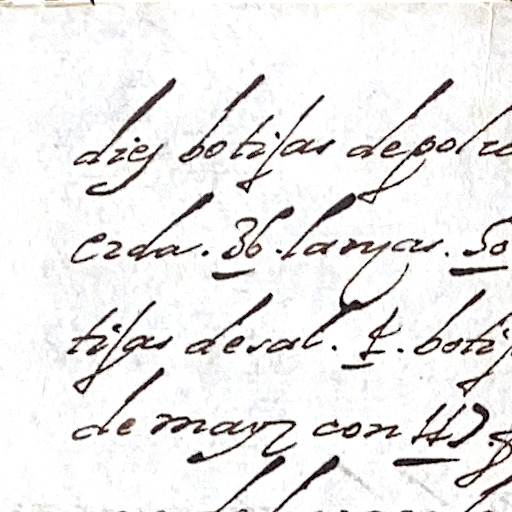 diez botijas de polvo
erda. 36. lanzas. 50
tijas de sal. 4. botij
de mayz con